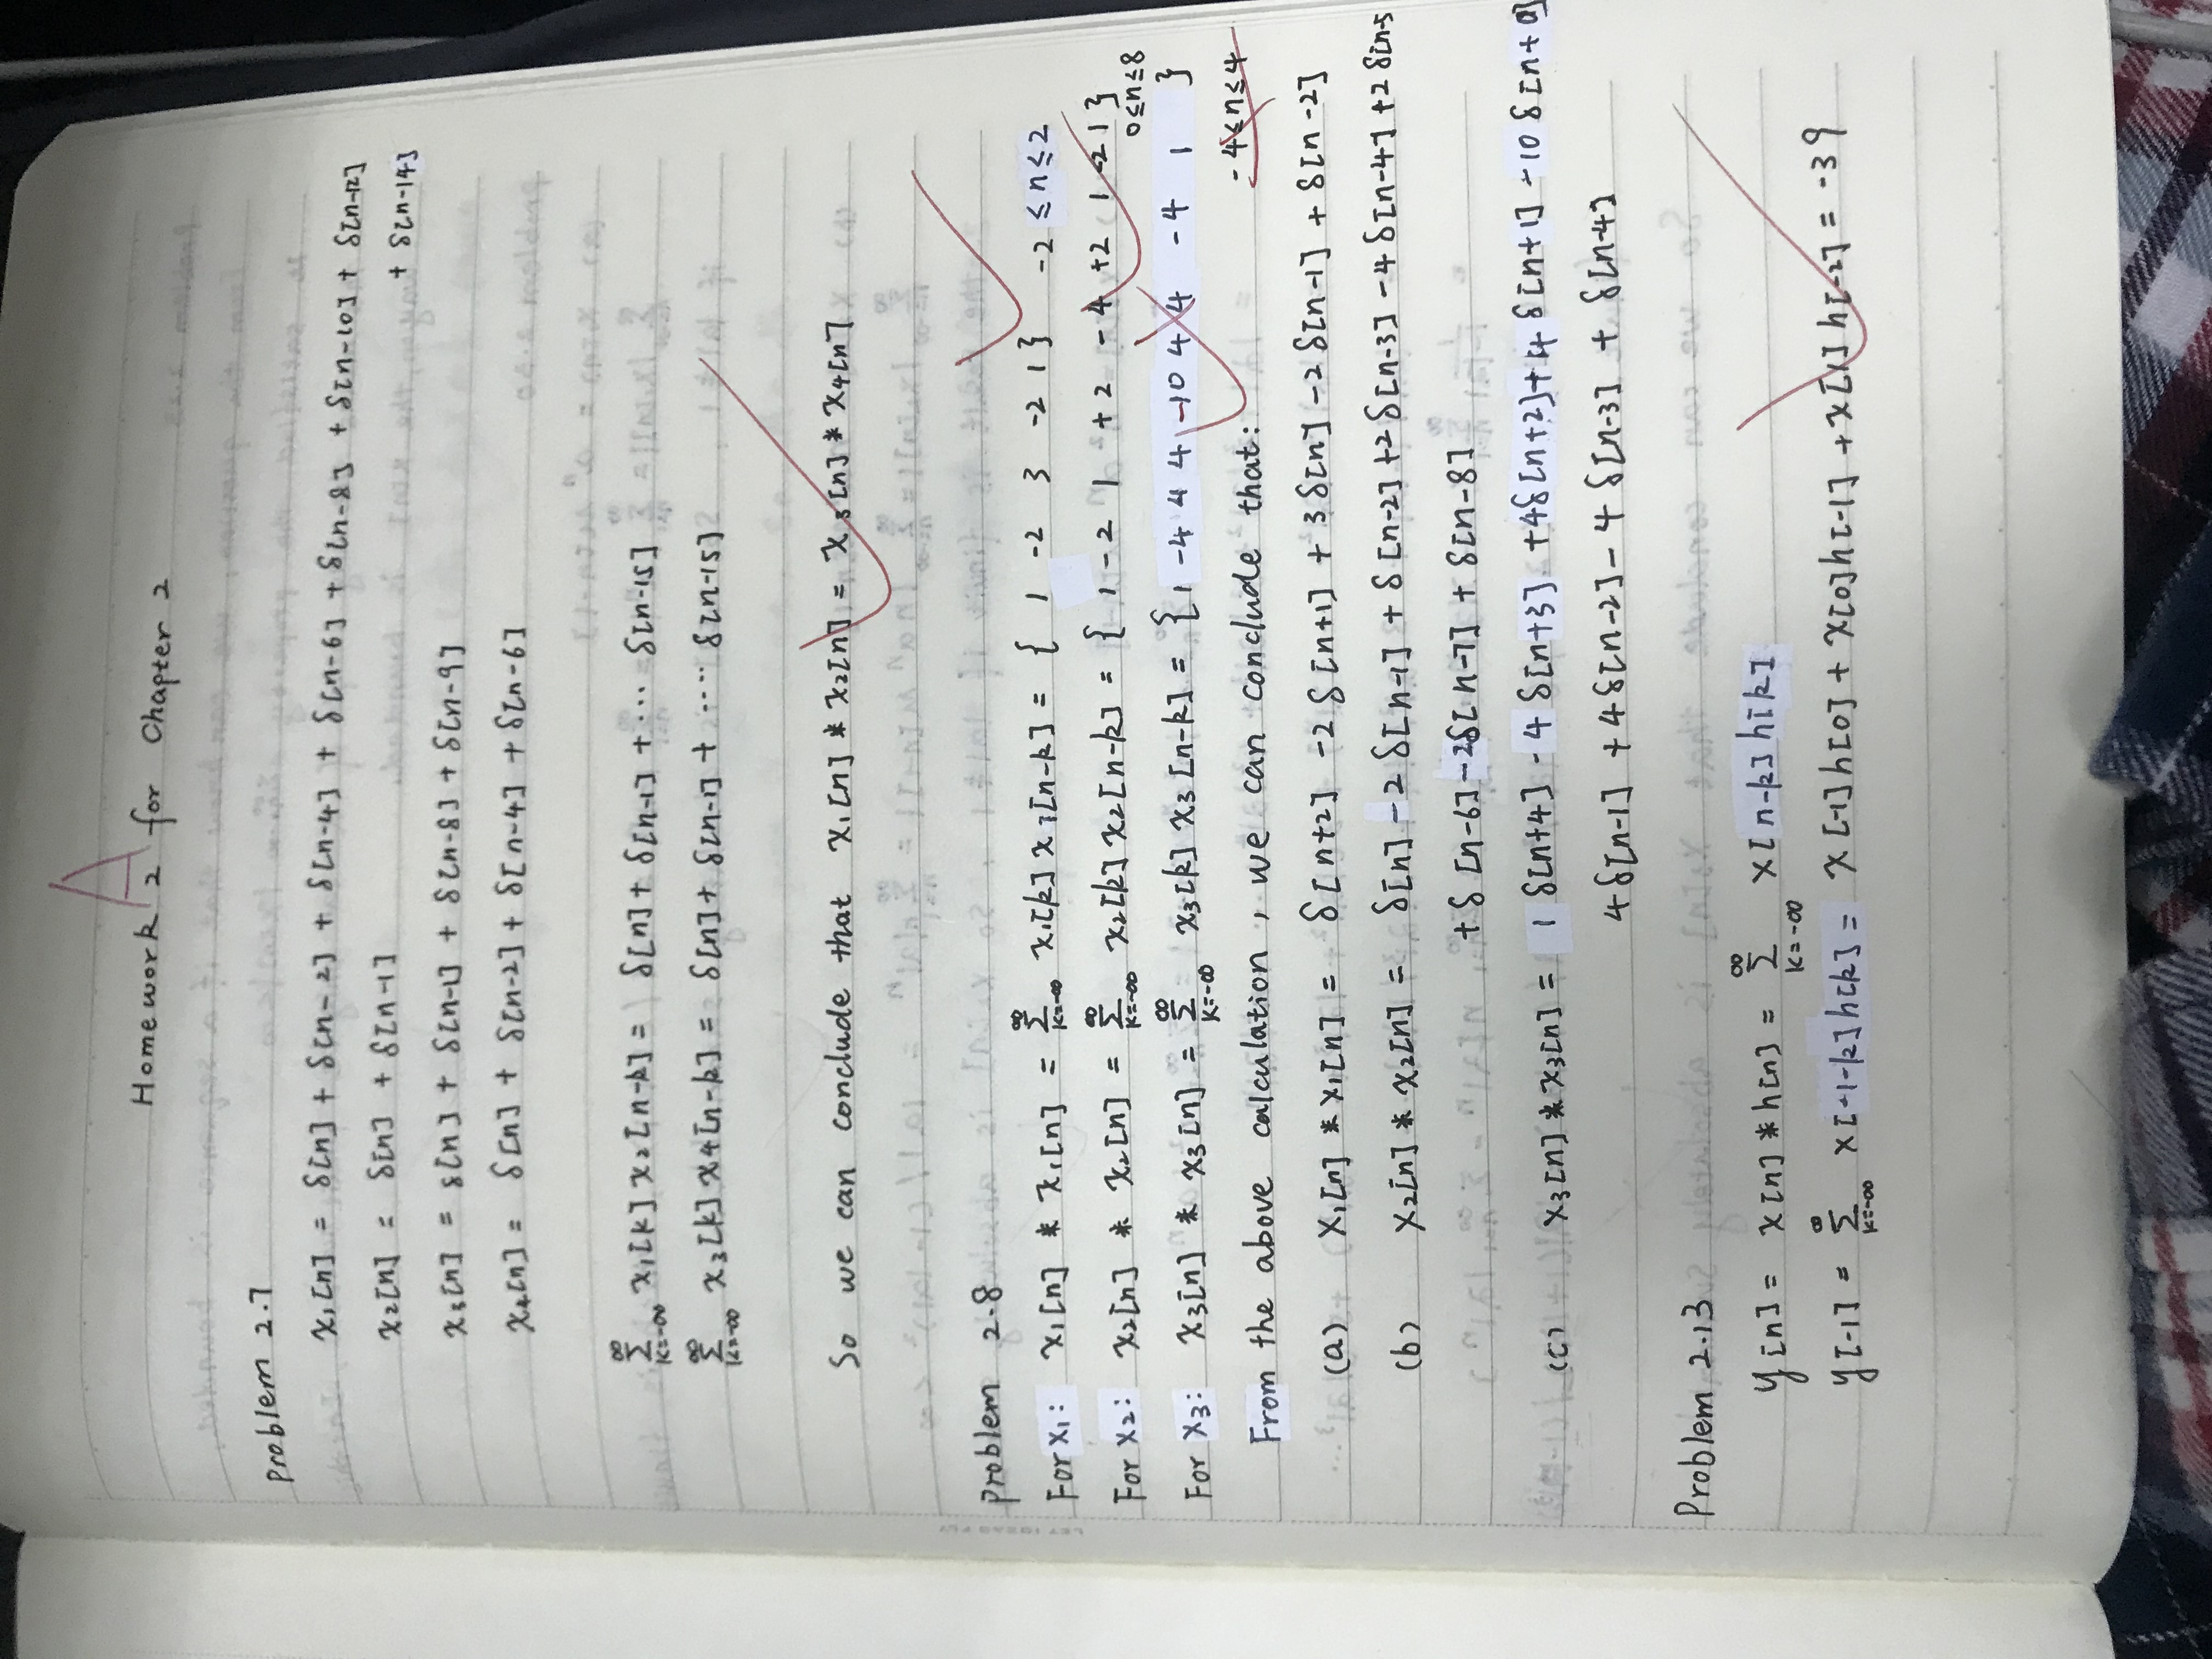 A
Homework 2 for Chapter 2
Problem 2.7
x₁[n] = δ[n] + δ[n-2] + δ[n-4] + δ[n-6] + δ[n-8] + δ[n-10] + δ[n-12]
+ δ[n-14]
x₂[n] = δ[n] + δ[n-1]
x₃[n] = δ[n] + δ[n-1] + δ[n-8] + δ[n-9]
x₄[n] = δ[n] + δ[n-2] + δ[n-4] + δ[n-6]
∞∑k=-∞ x₁[k] x₂[n-k] = δ[n] + δ[n-1] + ··· δ[n-15]
∞∑k=-∞ x₃[k] x₄[n-k] = δ[n] + δ[n-1] + ···· δ[n-15]
So we can conclude that x₁[n] * x₂[n] = x₃[n] * x₄[n]
problem 2.8
For x₁: x₁[n] * x₁[n] = ∞∑k=-∞ x₁[k] x₁[n-k] = { 1 -2 3 -2 1 } -2 ≤ n ≤ 2
For x₂: x₂[n] * x₂[n] = ∞∑k=-∞ x₂[k] x₂[n-k] = { 1 -2 1 +2 -4 +2 1 -2 1 }
0≤n≤8
For x₃: x₃[n] * x₃[n] = ∞∑k=-∞ x₃[k] x₃[n-k] = { 1 -4 4 4 -10 4 4 -4 1 }
-4≤n≤4
From the above calculation, we can conclude that:
(a) x₁[n] * x₁[n] = δ[n+2] -2 δ[n+1] + 3 δ[n] -2 δ[n-1] + δ[n-2]
(b) x₂[n] * x₂[n] = δ[n] -2 δ[n-1] + δ[n-2] +2 δ[n-3] -4 δ[n-4] +2 δ[n-5
+ δ[n-6] -2δ[n-7] + δ[n-8]
(c) x₃[n] * x₃[n] = 1 δ[n+4] -4 δ[n+3] +4δ[n+2] +4 δ[n+1] -10 δ[n+0]
4δ[n-1] +4δ[n-2] -4 δ[n-3] + δ[n-4]
Problem 2.13
y[n] = x[n] * h[n] = ∞∑k=-∞ x[n-k] h[k]
y[-1] = ∞∑k=-∞ x[-1-k] h[k] = x[-1]h[0] + x[0]h[-1] + x[1]h[-2] = -39